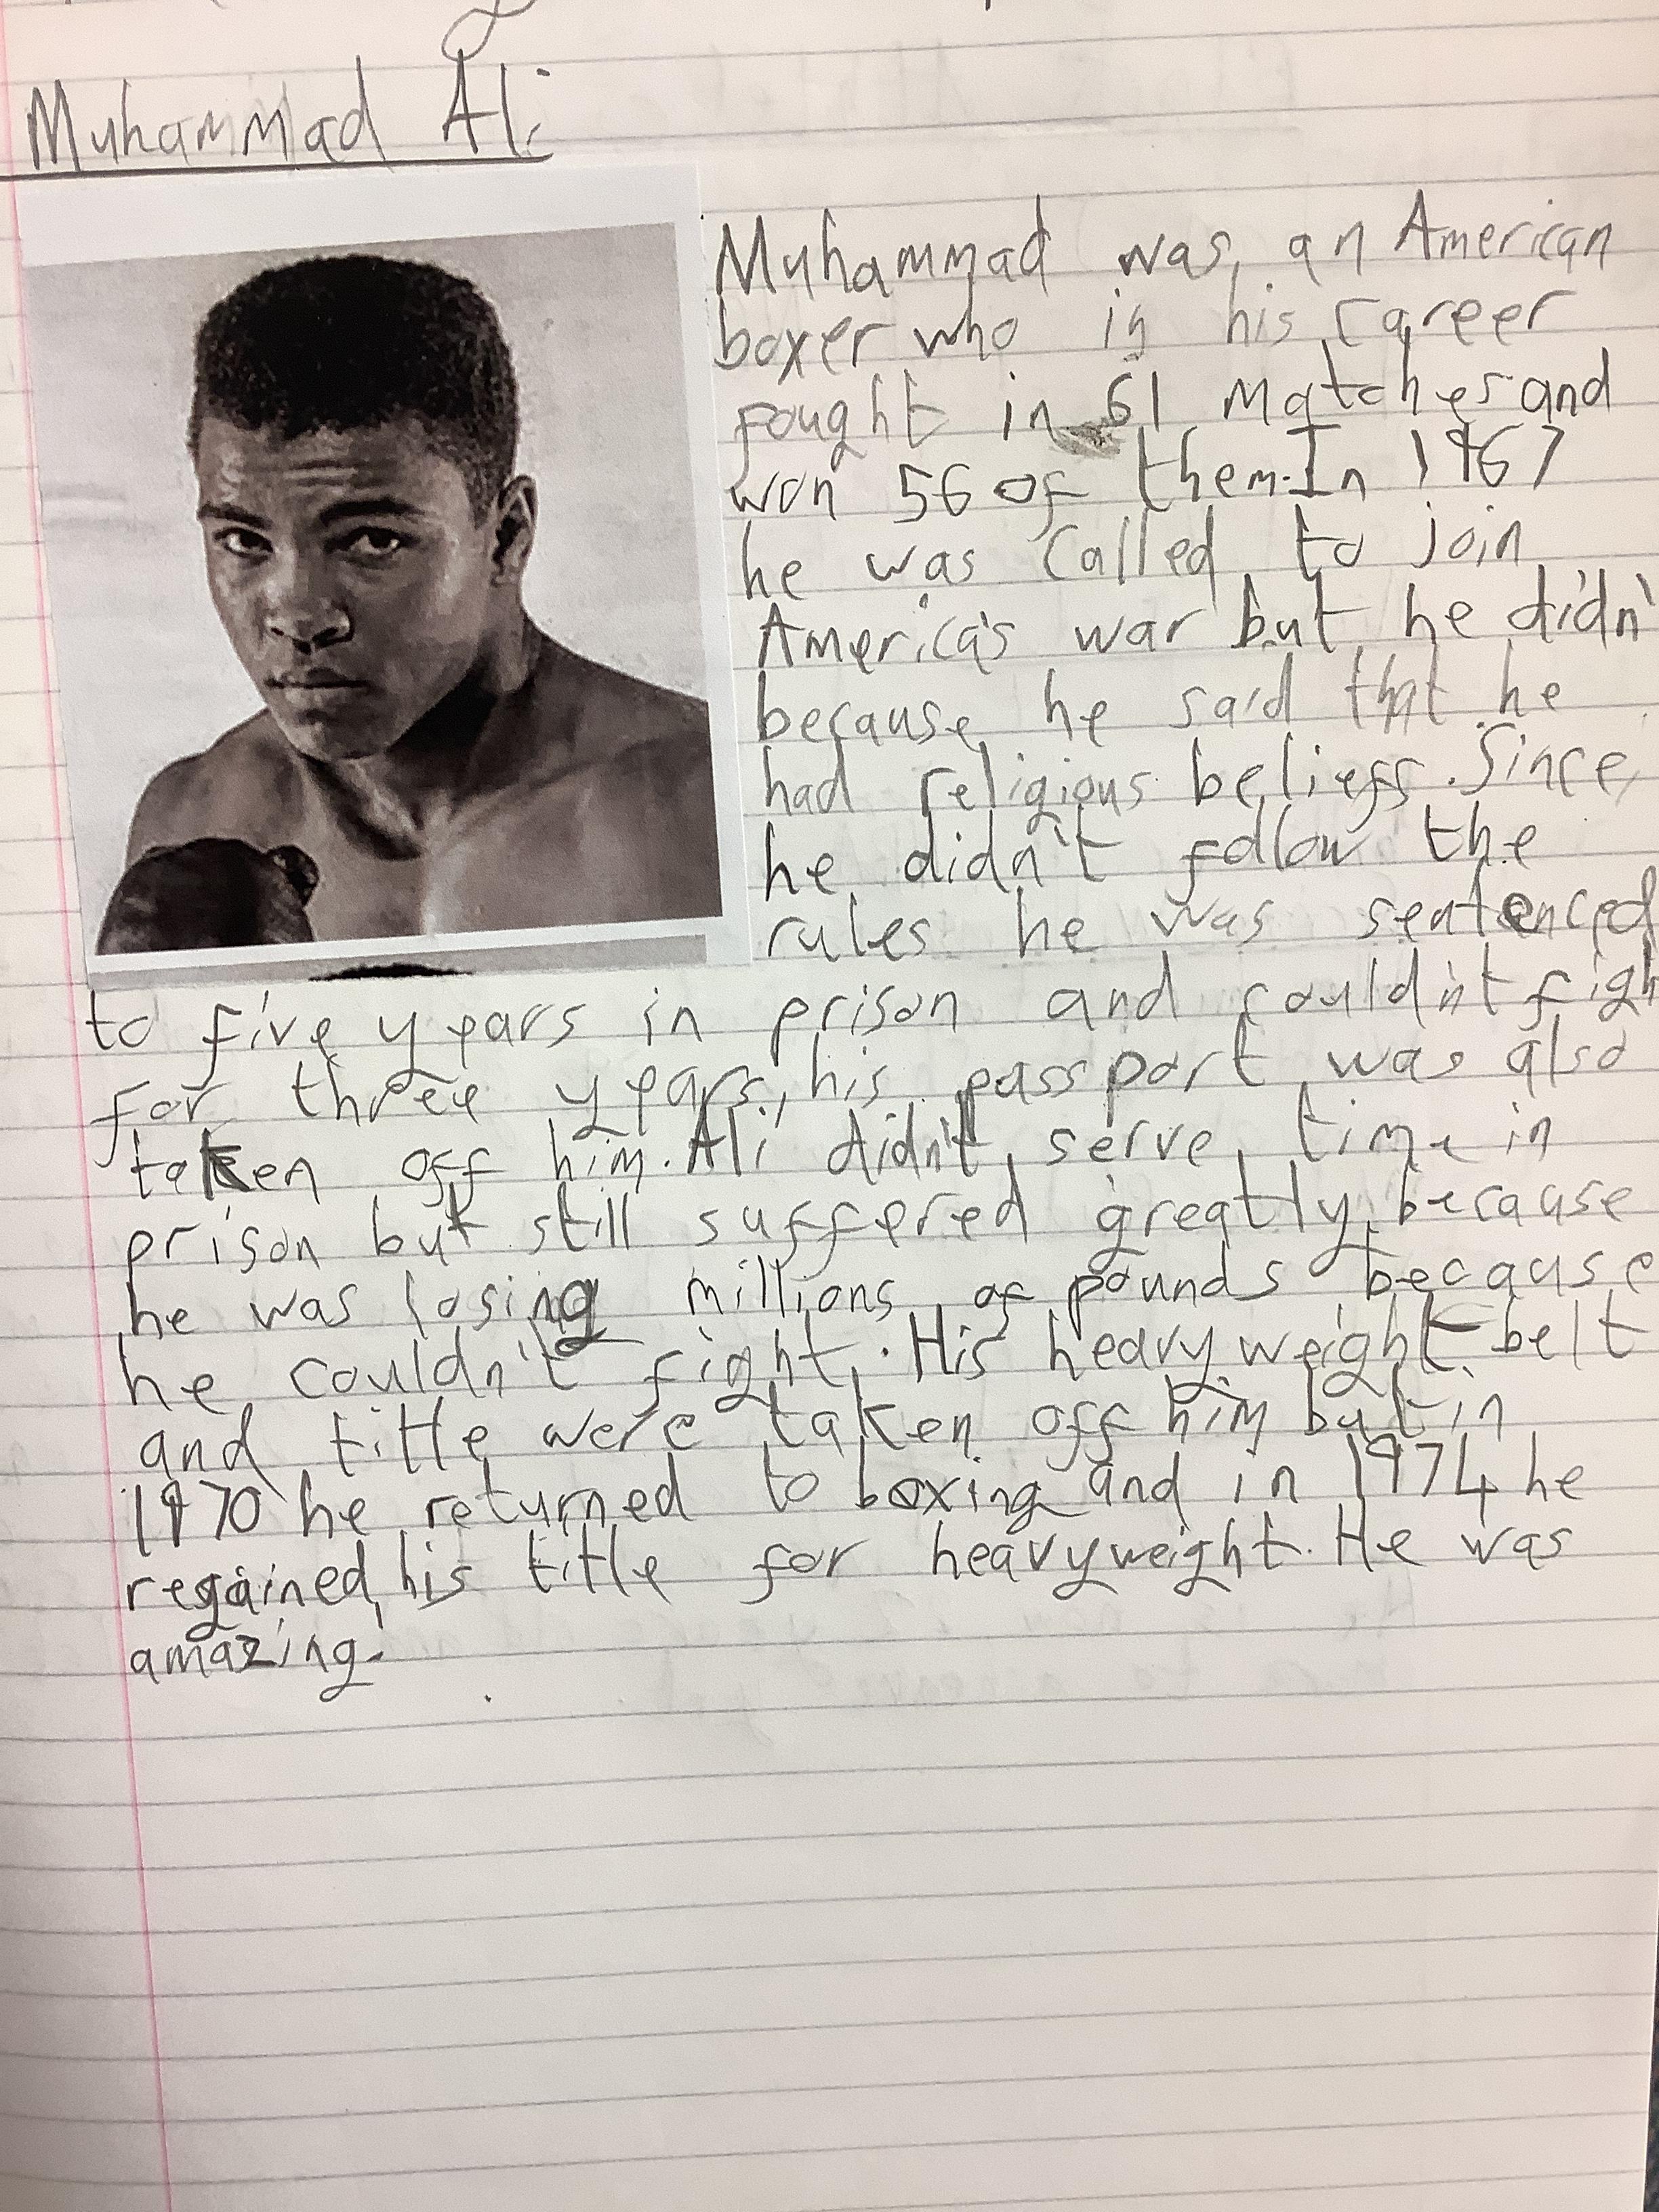 Muhammad Ali
Muhammad was an American
boxer who in his career
fought in 61 matches and
won 56 of them. In 1967
he was called to join
America's war but he didn'
because he said that he
had religious beliefs. Since
he didn't follow the
rules he was sentenced
to five years in prison and couldn't figh
for three years, his passport was also
taken off him. Ali didn't serve time in
prison but still suffered greatly because
he was losing millions of pounds because
he couldn't fight. His heavyweight belt
and title were taken off him but in
1970 he returned to boxing and in 1974 he
regained his title for heavyweight. He was
amazing.